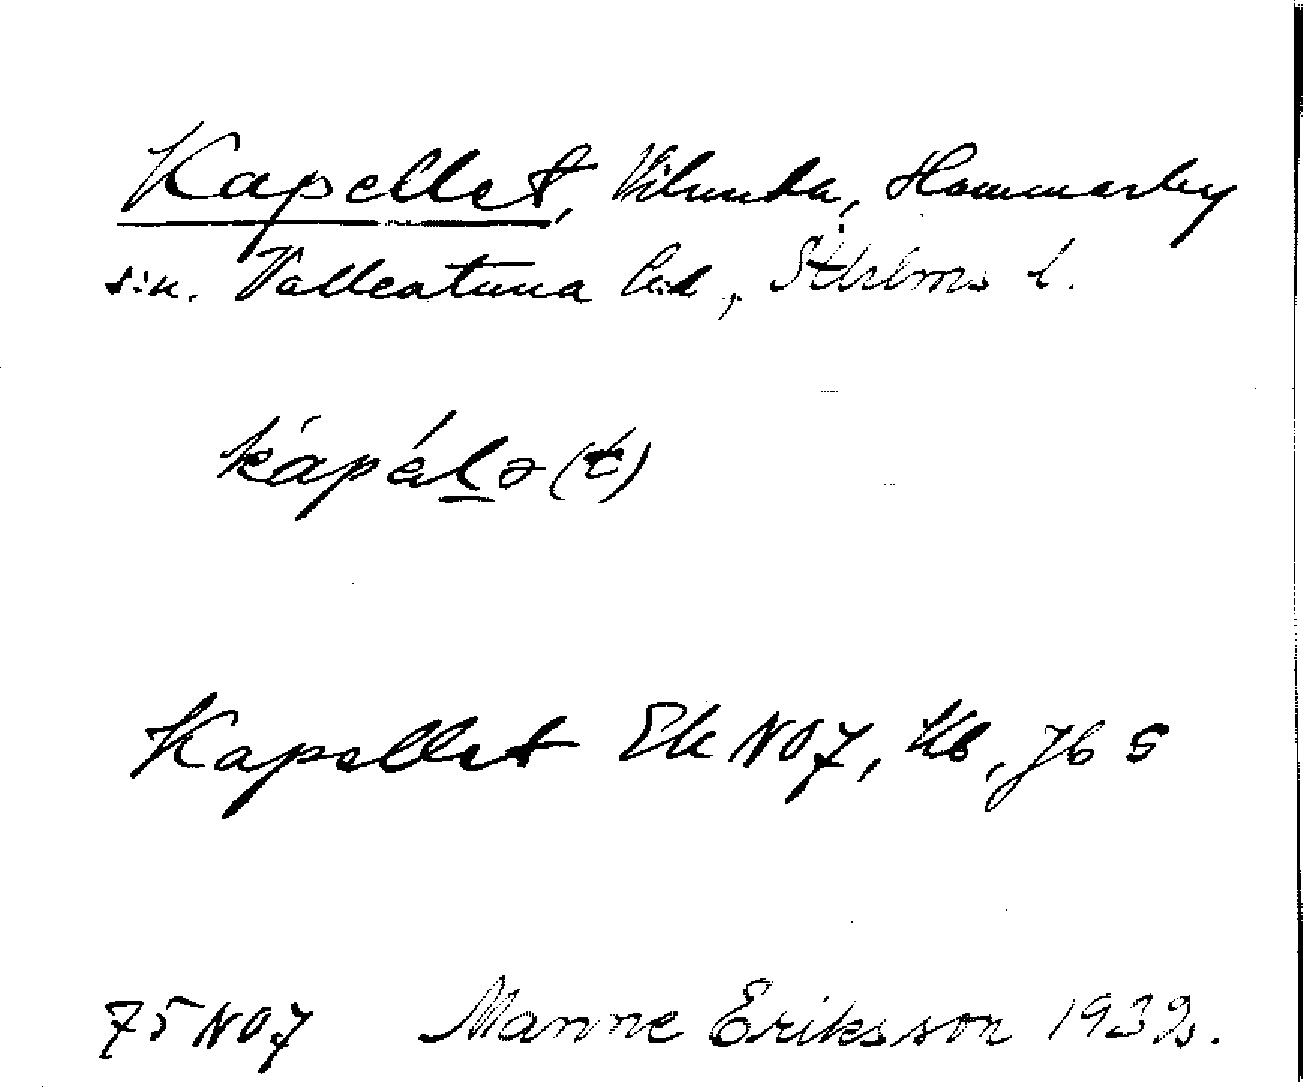 Kapellet, Vilunda, Hammarby
sn. Vallentuna hd, Sthlms l.
kápälə(t)
Kapellet Ek NO7, Kb, Jb 5
75 NO7 Manne Eriksson 1932.